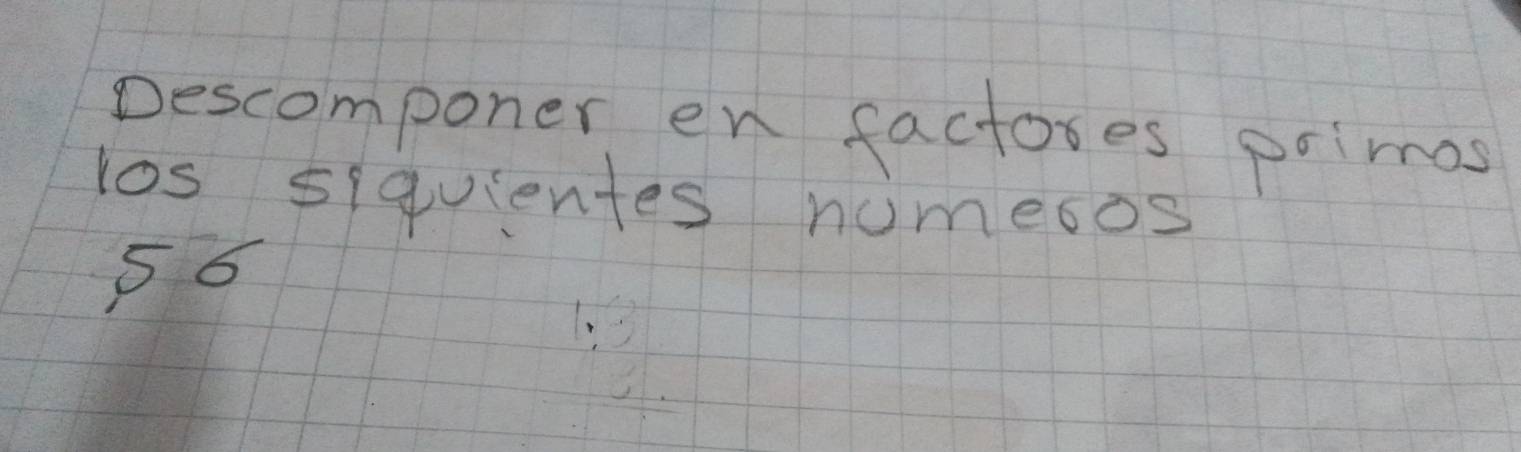 Descomponer en factores primos
los siguientes numeros
56